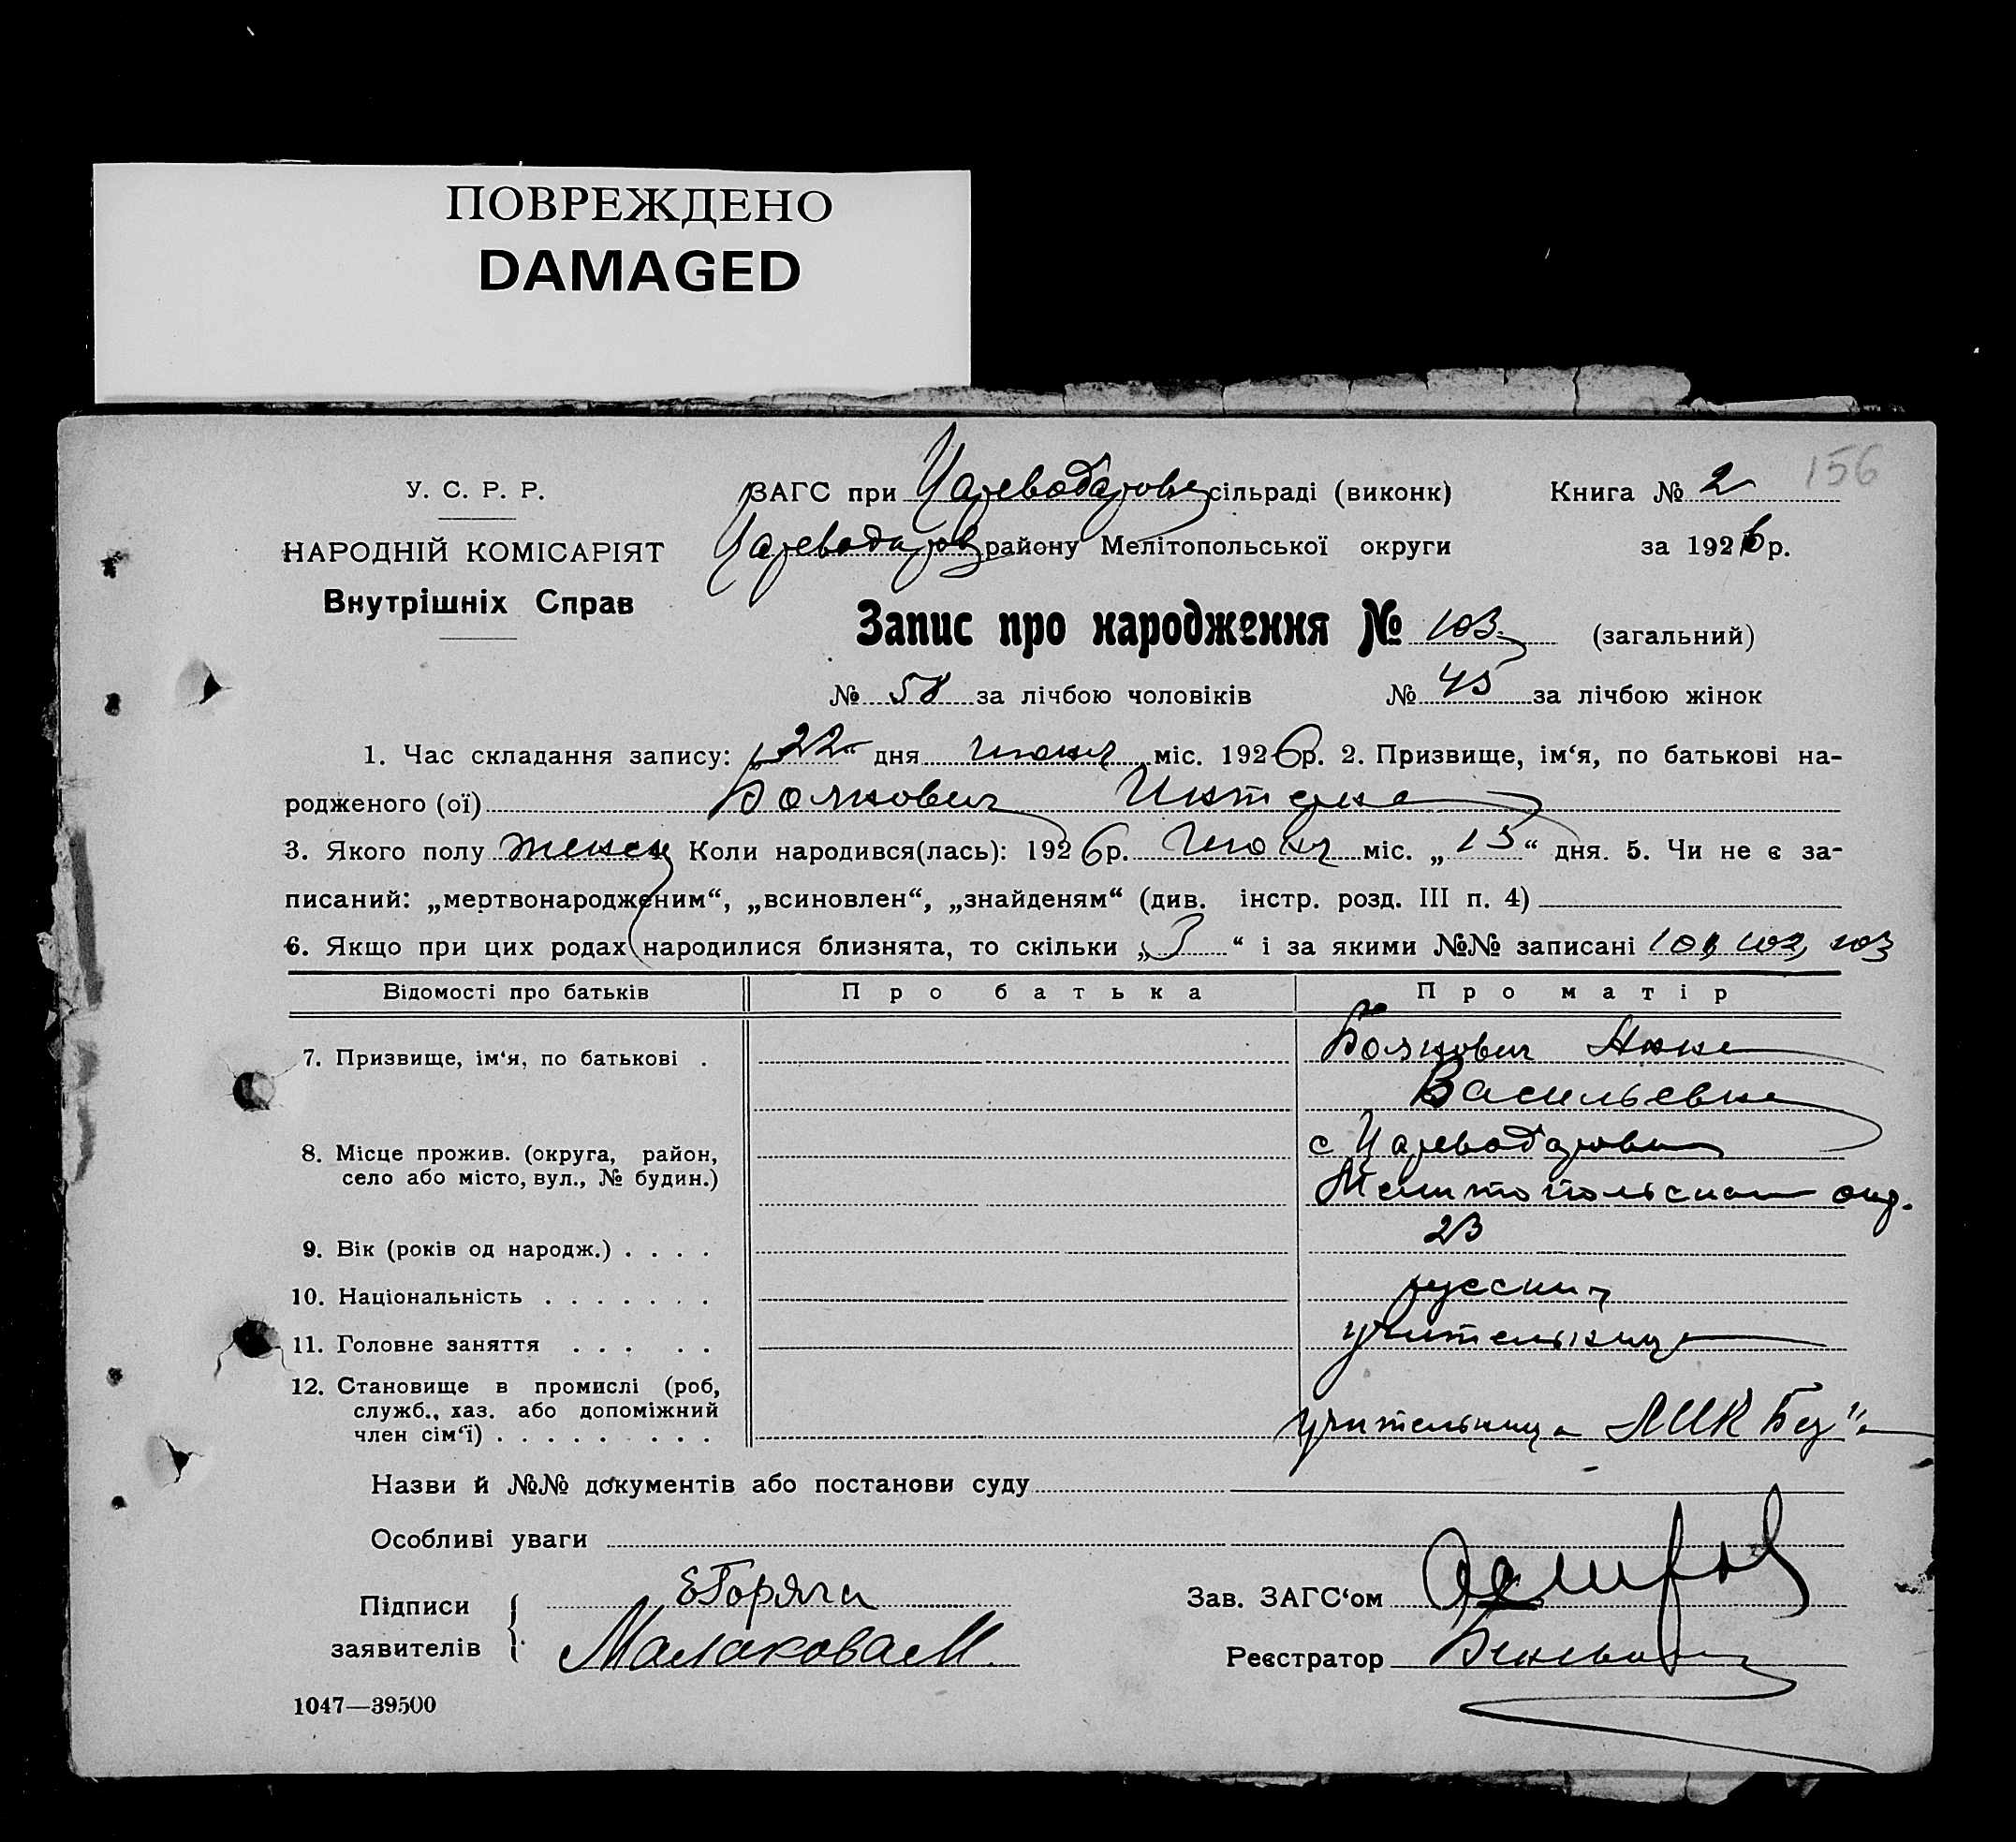 ПОВРЕЖДЕНО
DAMAGED
156
У. С. Р. Р.
НАРОДНІЙ КОМІСАРІЯТ
Внутрішніх Справ
ЗАГС при Цареводаровс сільраді (виконк) Книга № 2
Цареводаров району Мелітопольської округи за 1926 р.
Запис про народження № 103 (загальний)
№ 58 за лічбою чоловіків № 45 за лічбою жінок
1. Час складання запису: „22“ дня июня міс. 1926 р. 2. Призвище, ім‘я, по батькові на-
родженого (ої) Боянович
3. Якого полу женск Коли народився(лась): 1926 р. Июня міс. „15“ дня. 5. Чи не є за-
писаний: „мертвонародженим“, „всиновлен“, „знайденям“ (див. інстр. розд. III п. 4)
6. Якщо при цих родах народилися близнята, то скільки „3“ і за якими №№ записані 101, 102, 103
Відомості про батьків Про батька Про матір
7. Призвище, ім‘я, по батькові . Боянович Анна
Васильевна
8. Місце прожив. (округа, район, с Цареводаровка
село або місто, вул., № будин.) Мелитопольской окр.
9. Вік (років од народж.) . . . . 23
10. Національність . . . . . . . русская
11. Головне заняття . . . . . учительница
12. Становище в промислі (роб,
служб., хаз. або допоміжний
член сім‘ї) . . . . . . . . . учительница
Назви й №№ документів або постанови суду
Особливі уваги
Підписи ЕГоряча
заявителів Малакова М.
Зав. ЗАГС‘ом
Реєстратор
1047—39500